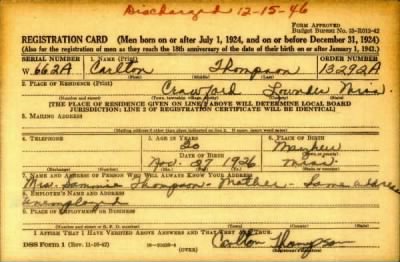 Discharged 12-15-46
FORM APPROVED
Budget Bureau No. 33-R012-42
REGISTRATION CARD (Men born on or after July 1, 1924, and on or before December 31, 1924)
(Also for the registration of men as they reach the 18th anniversary of the date of their birth on or after January 1, 1943.)
SERIAL NUMBER 1. NAME (Print) ORDER NUMBER
W. 662A Carlton Thompson 13292A
(First) (Middle) (Last)
2. PLACE OF RESIDENCE (Print)
Crawford Lowndes Miss.
(Number and street) (Town, township, village, or city) (County) (State)
[THE PLACE OF RESIDENCE GIVEN ON LINE 2 ABOVE WILL DETERMINE LOCAL BOARD
JURISDICTION; LINE 2 OF REGISTRATION CERTIFICATE WILL BE IDENTICAL]
3. MAILING ADDRESS
(Mailing address if other than place indicated on line 2. If same, insert word same)
4. TELEPHONE 5. AGE IN YEARS 6. PLACE OF BIRTH
20
DATE OF BIRTH
Nov. 27 1926 Miss.
(Exchange) (Number) (Mo.) (Day) (Yr.) (State or country)
7. NAME AND ADDRESS OF PERSON WHO WILL ALWAYS KNOW YOUR ADDRESS
Mrs. Sammie Thompson - Mother - Same address
8. EMPLOYER'S NAME AND ADDRESS
Unemployed
9. PLACE OF EMPLOYMENT OR BUSINESS
(Number and street or R. F. D. number) (Town) (County) (State)
I AFFIRM THAT I HAVE VERIFIED ABOVE ANSWERS AND THAT THEY ARE TRUE.
DSS Form 1 (Rev. 11-16-42) (OVER) Carlton Thompson